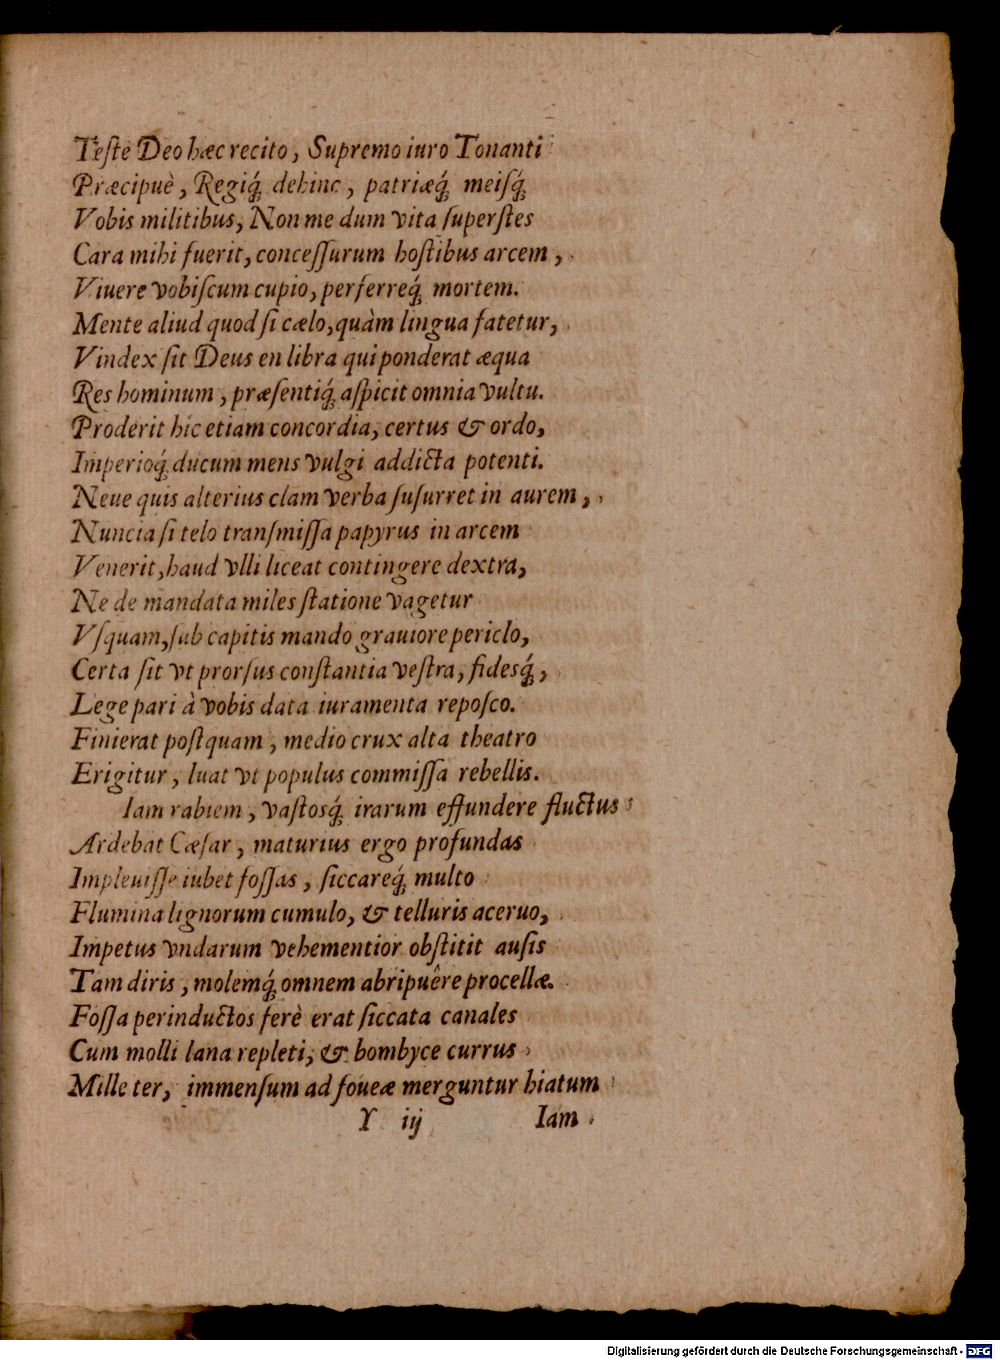 Teste Deo hæc recito, Supremo iuro Tonanti
Præcipuè, Regiq́; dehinc, patriæq́; meisq́;
Vobis militibus, Non me dum vita superstes
Cara mihi fuerit, concessurum hostibus arcem,
Viuere vobiscum cupio, perferreq́; mortem.
Mente aliud quod si cælo, quàm lingua fatetur,
Vindex sit Deus en libra qui ponderat æqua
Res hominum, præsentiq́; aspicit omnia vultu.
Proderit hic etiam concordia, certus & ordo,
Imperioq́; ducum mens vulgi addicta potenti.
Neue quis alterius clam verba susurret in aurem,
Nuncia si telo transmissa papyrus in arcem
Venerit, haud vlli liceat contingere dextra,
Ne de mandata miles statione vagetur
Vsquam, sub capitis mando grauiore periclo,
Certa sit vt prorsus constantia vestra, fidesq́;,
Lege pari à vobis data iuramenta reposco.
Finierat postquam, medio crux alta theatro
Erigitur, luat vt populus commissa rebellis.
Iam rabiem, vastosq́; irarum effundere fluctus
Ardebat Cæsar, maturius ergo profundas
Impleuisse iubet fossas, siccareq́; multo
Flumina lignorum cumulo, & telluris aceruo,
Impetus vndarum vehementior obstitit ausis
Tam diris, molemq́; omnem abripuêre procellæ.
Fossa perinductos ferè erat siccata canales
Cum molli lana repleti, & bombyce currus
Mille ter, immensum ad foueæ merguntur hiatum
Y iij Iam
Digitalisierung gefördert durch die Deutsche Forschungsgemeinschaft - DFG